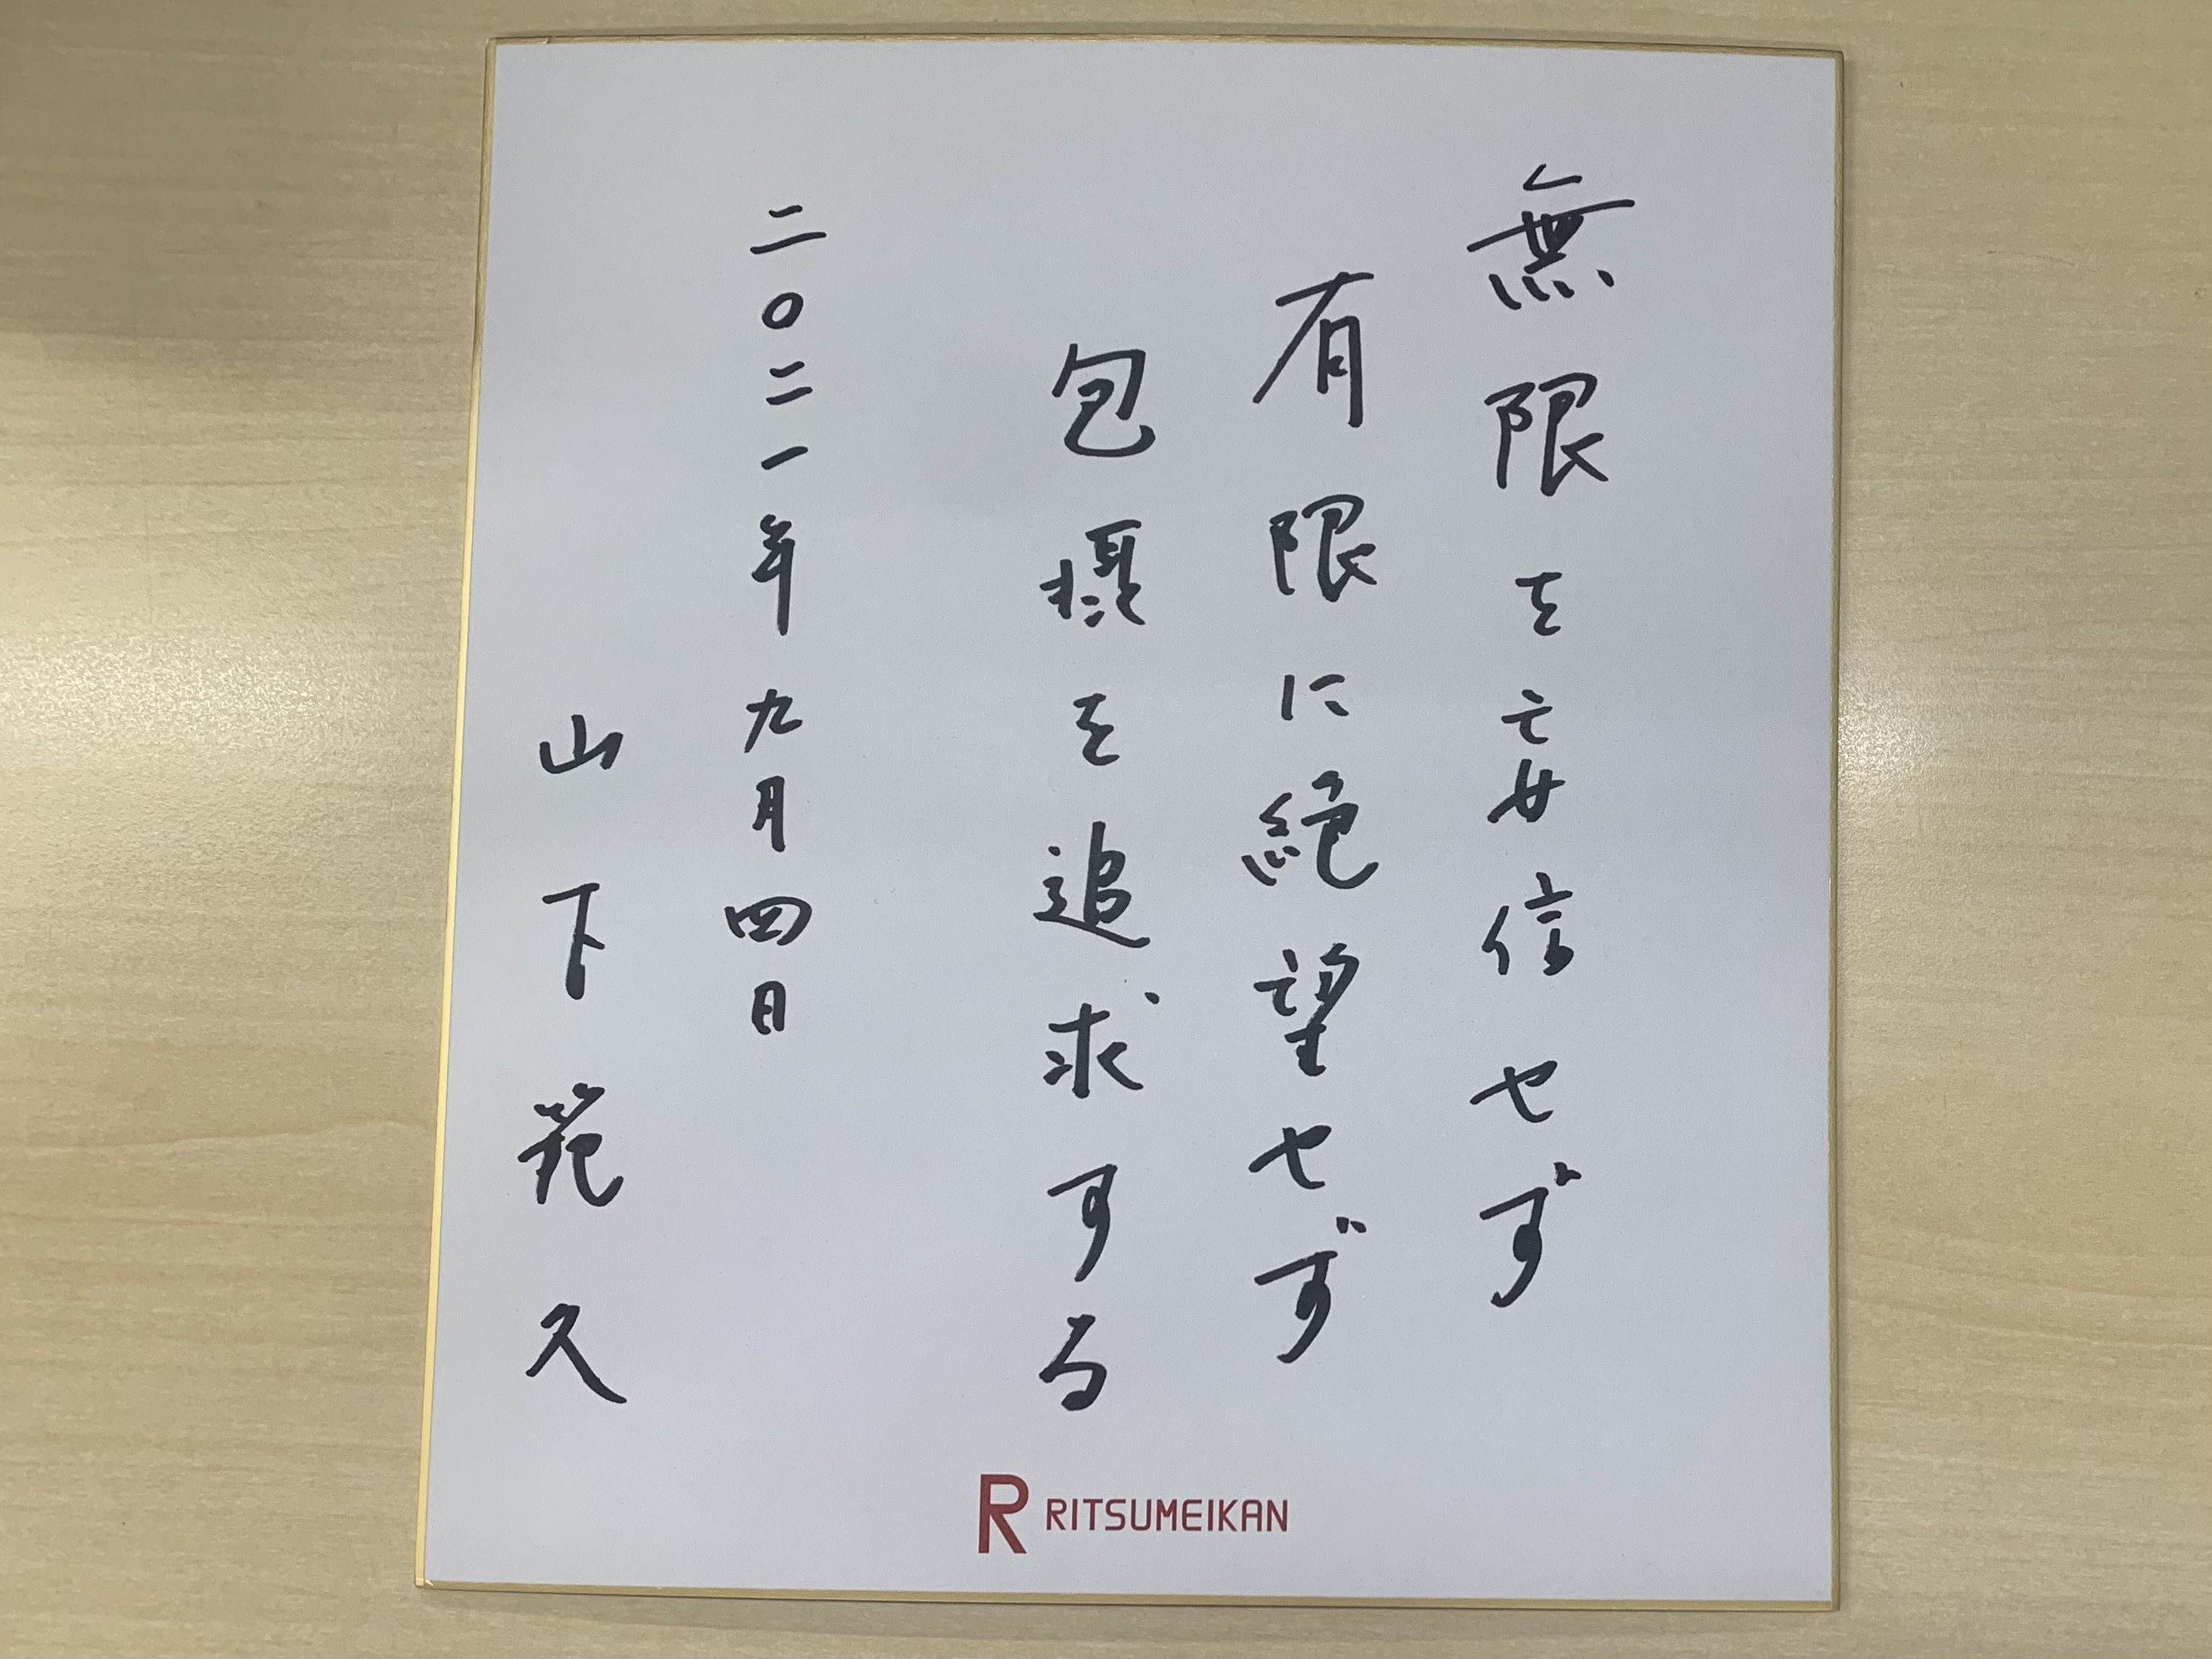 無限を妄信せず
有限に絶望せず
包摂を追求する
二〇二一年九月四日
山下範久
R RITSUMEIKAN